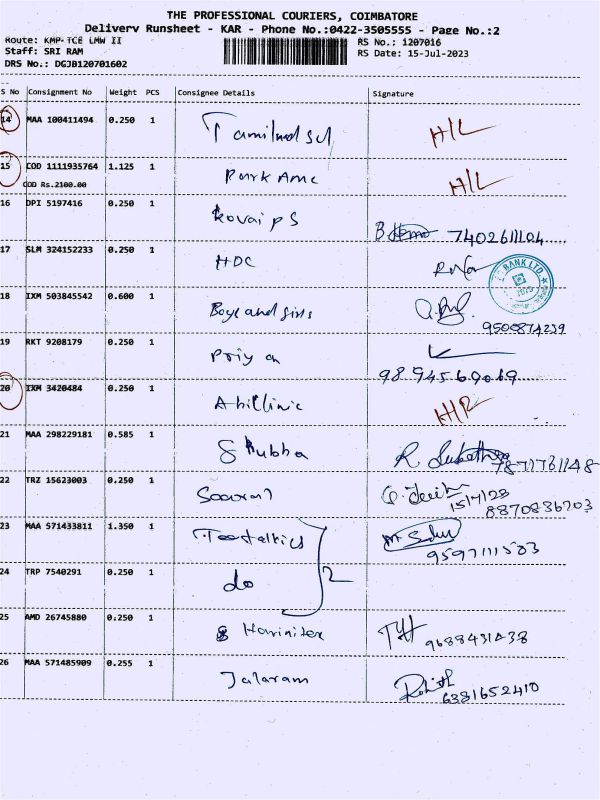 THE PROFESSIONAL COURIERS, COIMBATORE
Delivery Runsheet - KAR - Phone No.:0422-3505555 - Page No.:2
Route: KMP-TCE LMW II
RS No.: 1207016
Staff: SRI RAM
RS Date: 15-Jul-2023
DRS No.: DGJB120701602
S No Consignment No Weight PCS Consignee Details Signature
14 MAA 100411494 0.250 1 H/L
15 COD 1111935764 1.125 1 Park Ame H/L
COD Rs.2100.00
16 DPI 5197416 0.250 1 Kovai PS
7402611104
17 SLM 324152233 0.250 1 HDC
BANK LTD.
18 IXM 503845542 0.600 1 Boys and girls
9500874239
19 RKT 9208179 0.250 1 Priyan
20 IXM 3420484 0.250 1 Abi Clinic
21 MAA 298229181 0.585 1 Shubha R
22 TRZ 15623003 0.250 1
8870836703
23 MAA 571433811 1.350 1
9597111583
24 TRP 7540291 0.250 1 do 2
25 AMD 26745880 0.250 1 Harinitex 9688431438
26 MAA 571485909 0.255 1 Jalaram Rohith
6381652410